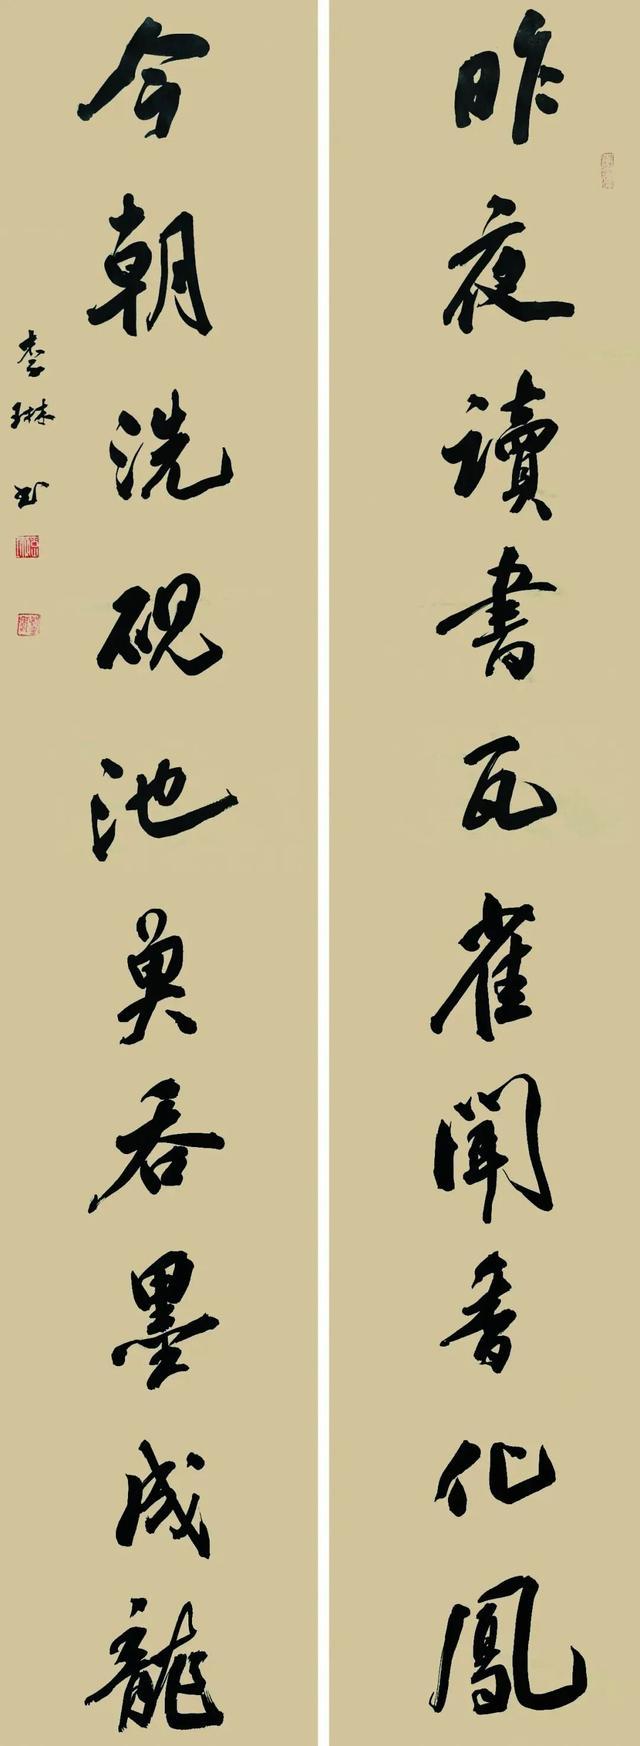 昨夜讀書瓦雀聞香化鳳
今朝洗硯池魚吞墨成龍
李琳书